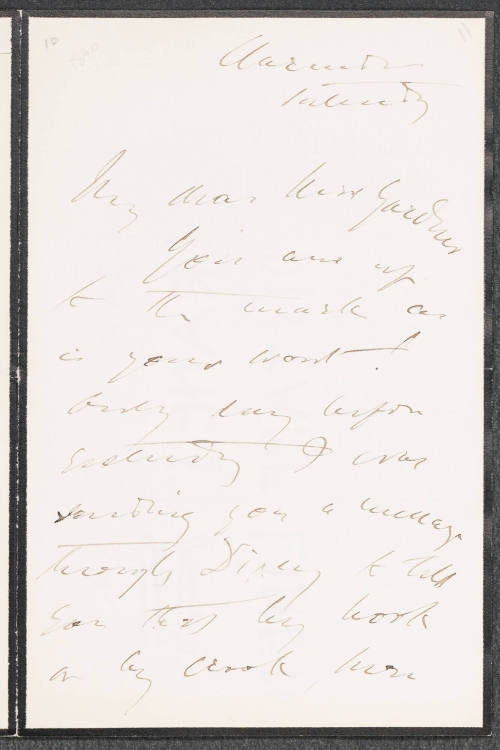 10
11
Clarendon
Saturday
My dear Mrs Gardner
You are up
to the mark as
is your wont!
Only day before
yesterday I was
sending you a message
through Dixey to tell
you that by hook
or by crook, here